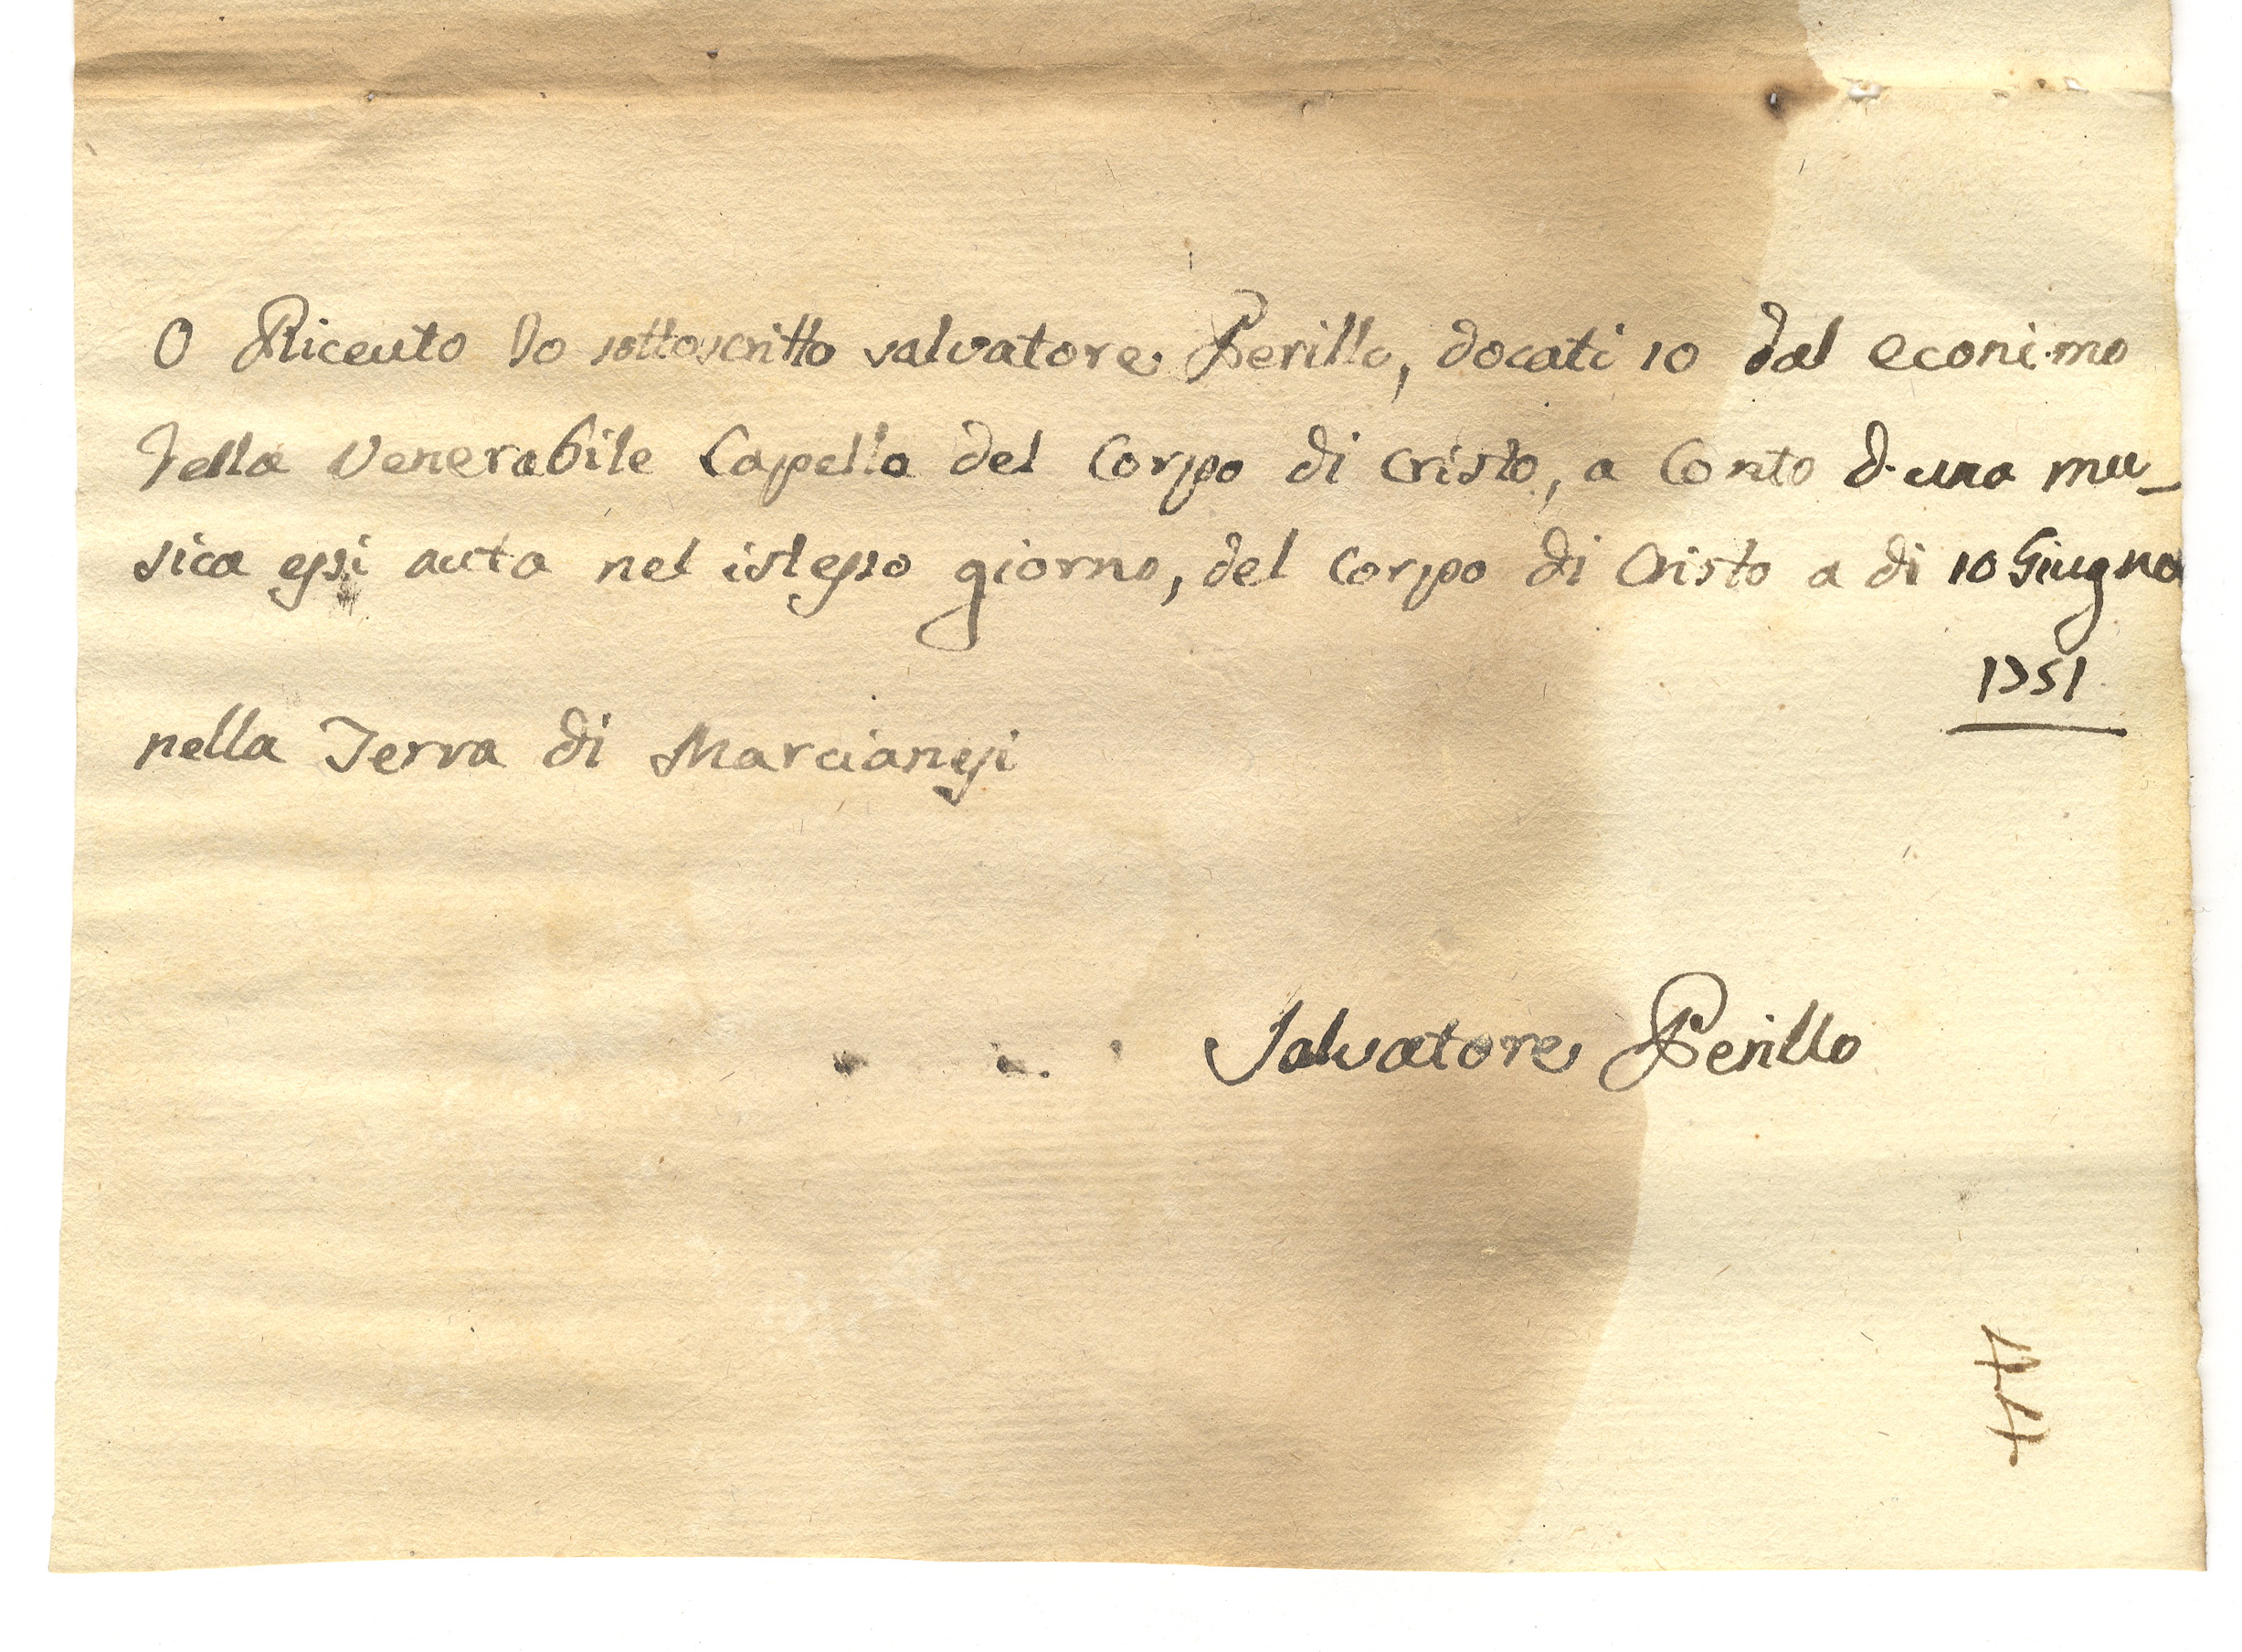 O Riceuto Io sottoscritto salvatore Perillo, docati 10 dal econimo
della Venerabile Capella del Corpo di Cristo, a Conto d'una mu_
sica essi auta nel istesso giorno, del Corpo di Cristo a di 10 Giugno
1751
nella Terra di Marcianesi
Salvatore Perillo
44